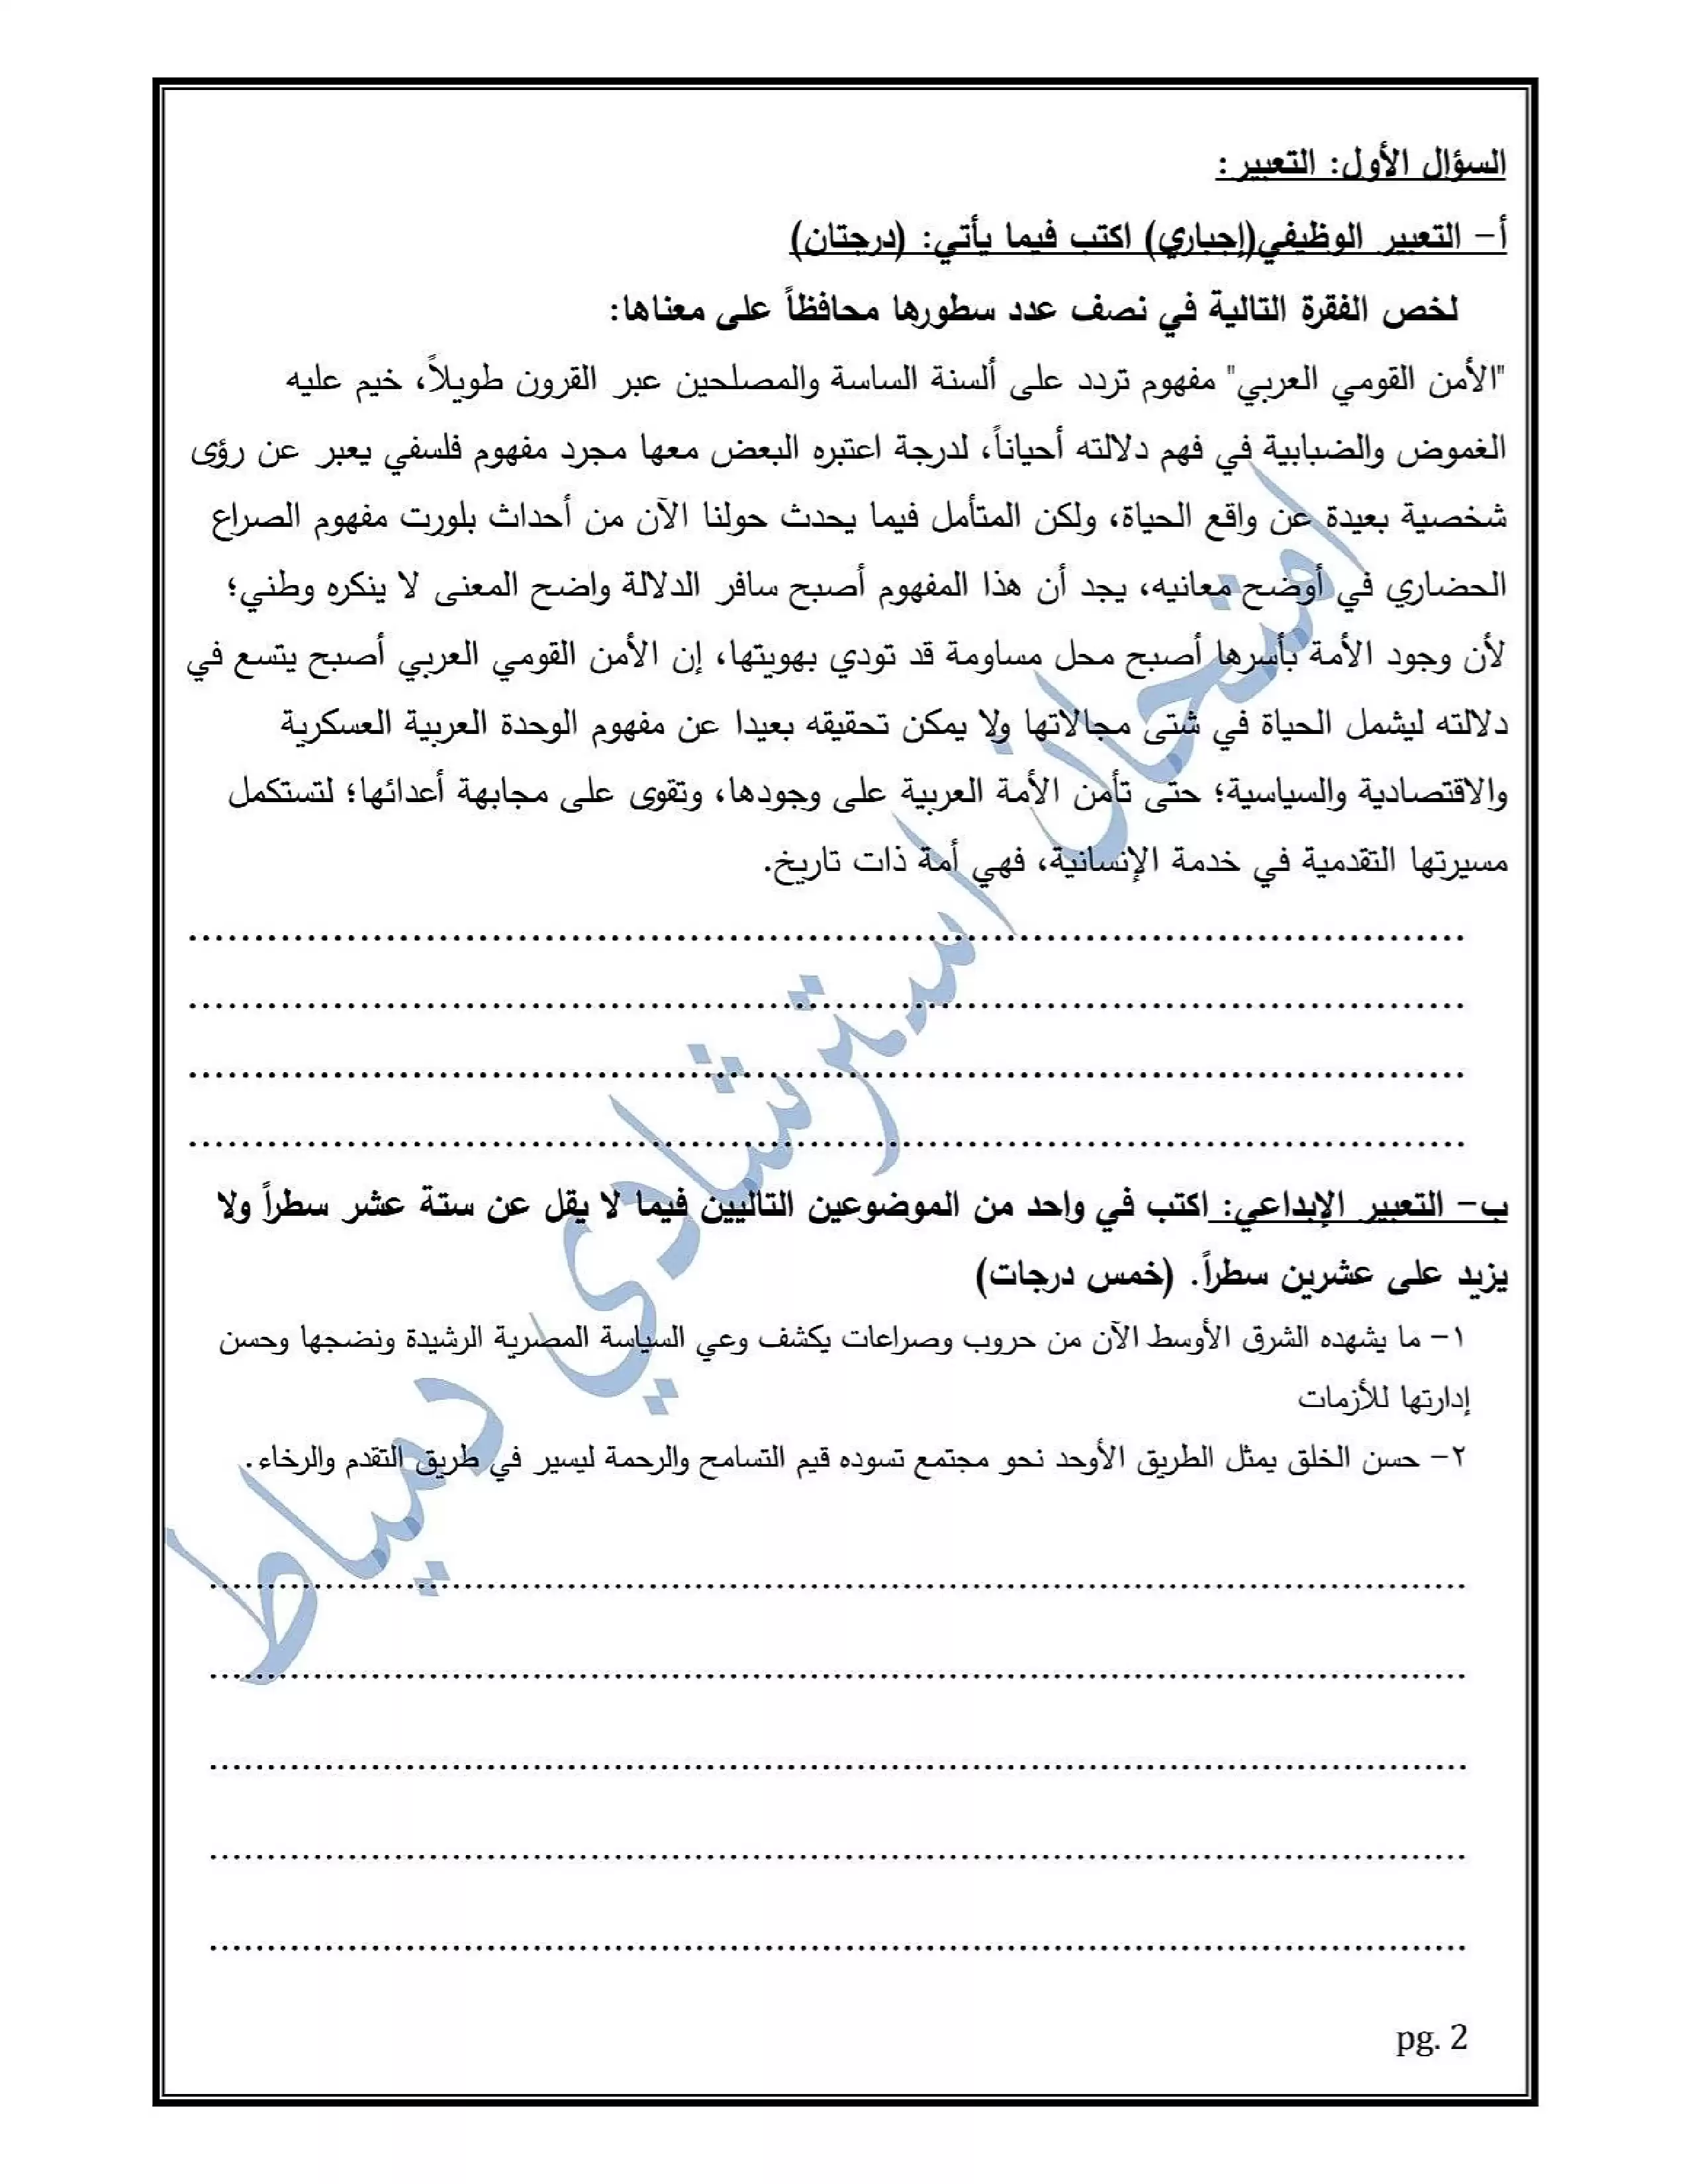 السؤال الأول: التعبير:
أ- التعبير الوظيفي(إجباري) اكتب فيما يأتي: (درجتان)
لخص الفقرة التالية في نصف عدد سطورها محافظاً على معناها:
"الأمن القومي العربي" مفهوم تردد على ألسنة الساسة والمصلحين عبر القرون طويلاً، خيم عليه
الغموض والضبابية في فهم دلالته أحياناً، لدرجة اعتبره البعض معها مجرد مفهوم فلسفي يعبر عن رؤى
شخصية بعيدة عن واقع الحياة، ولكن المتأمل فيما يحدث حولنا الآن من أحداث بلورت مفهوم الصراع
الحضاري في أوضح معانيه، يجد أن هذا المفهوم أصبح سافر الدلالة واضح المعنى لا ينكره وطني؛
لأن وجود الأمة بأسرها أصبح محل مساومة قد تودي بهويتها، إن الأمن القومي العربي أصبح يتسع في
دلالته ليشمل الحياة في شتى مجالاتها ولا يمكن تحقيقه بعيدا عن مفهوم الوحدة العربية العسكرية
والاقتصادية والسياسية؛ حتى تأمن الأمة العربية على وجودها، وتقوى على مجابهة أعدائها؛ لتستكمل
مسيرتها التقدمية في خدمة الإنسانية، فهي أمة ذات تاريخ.
ب- التعبير الإبداعي: اكتب في واحد من الموضوعين التاليين فيما لا يقل عن ستة عشر سطراً ولا
يزيد على عشرين سطراً. (خمس درجات)
١- ما يشهده الشرق الأوسط الآن من حروب وصراعات يكشف وعي السياسة المصرية الرشيدة ونضجها وحسن
إدارتها للأزمات
٢- حسن الخلق يمثل الطريق الأوحد نحو مجتمع تسوده قيم التسامح والرحمة ليسير في طريق التقدم والرخاء.
امتحان استرشادي دمياط
pg. 2